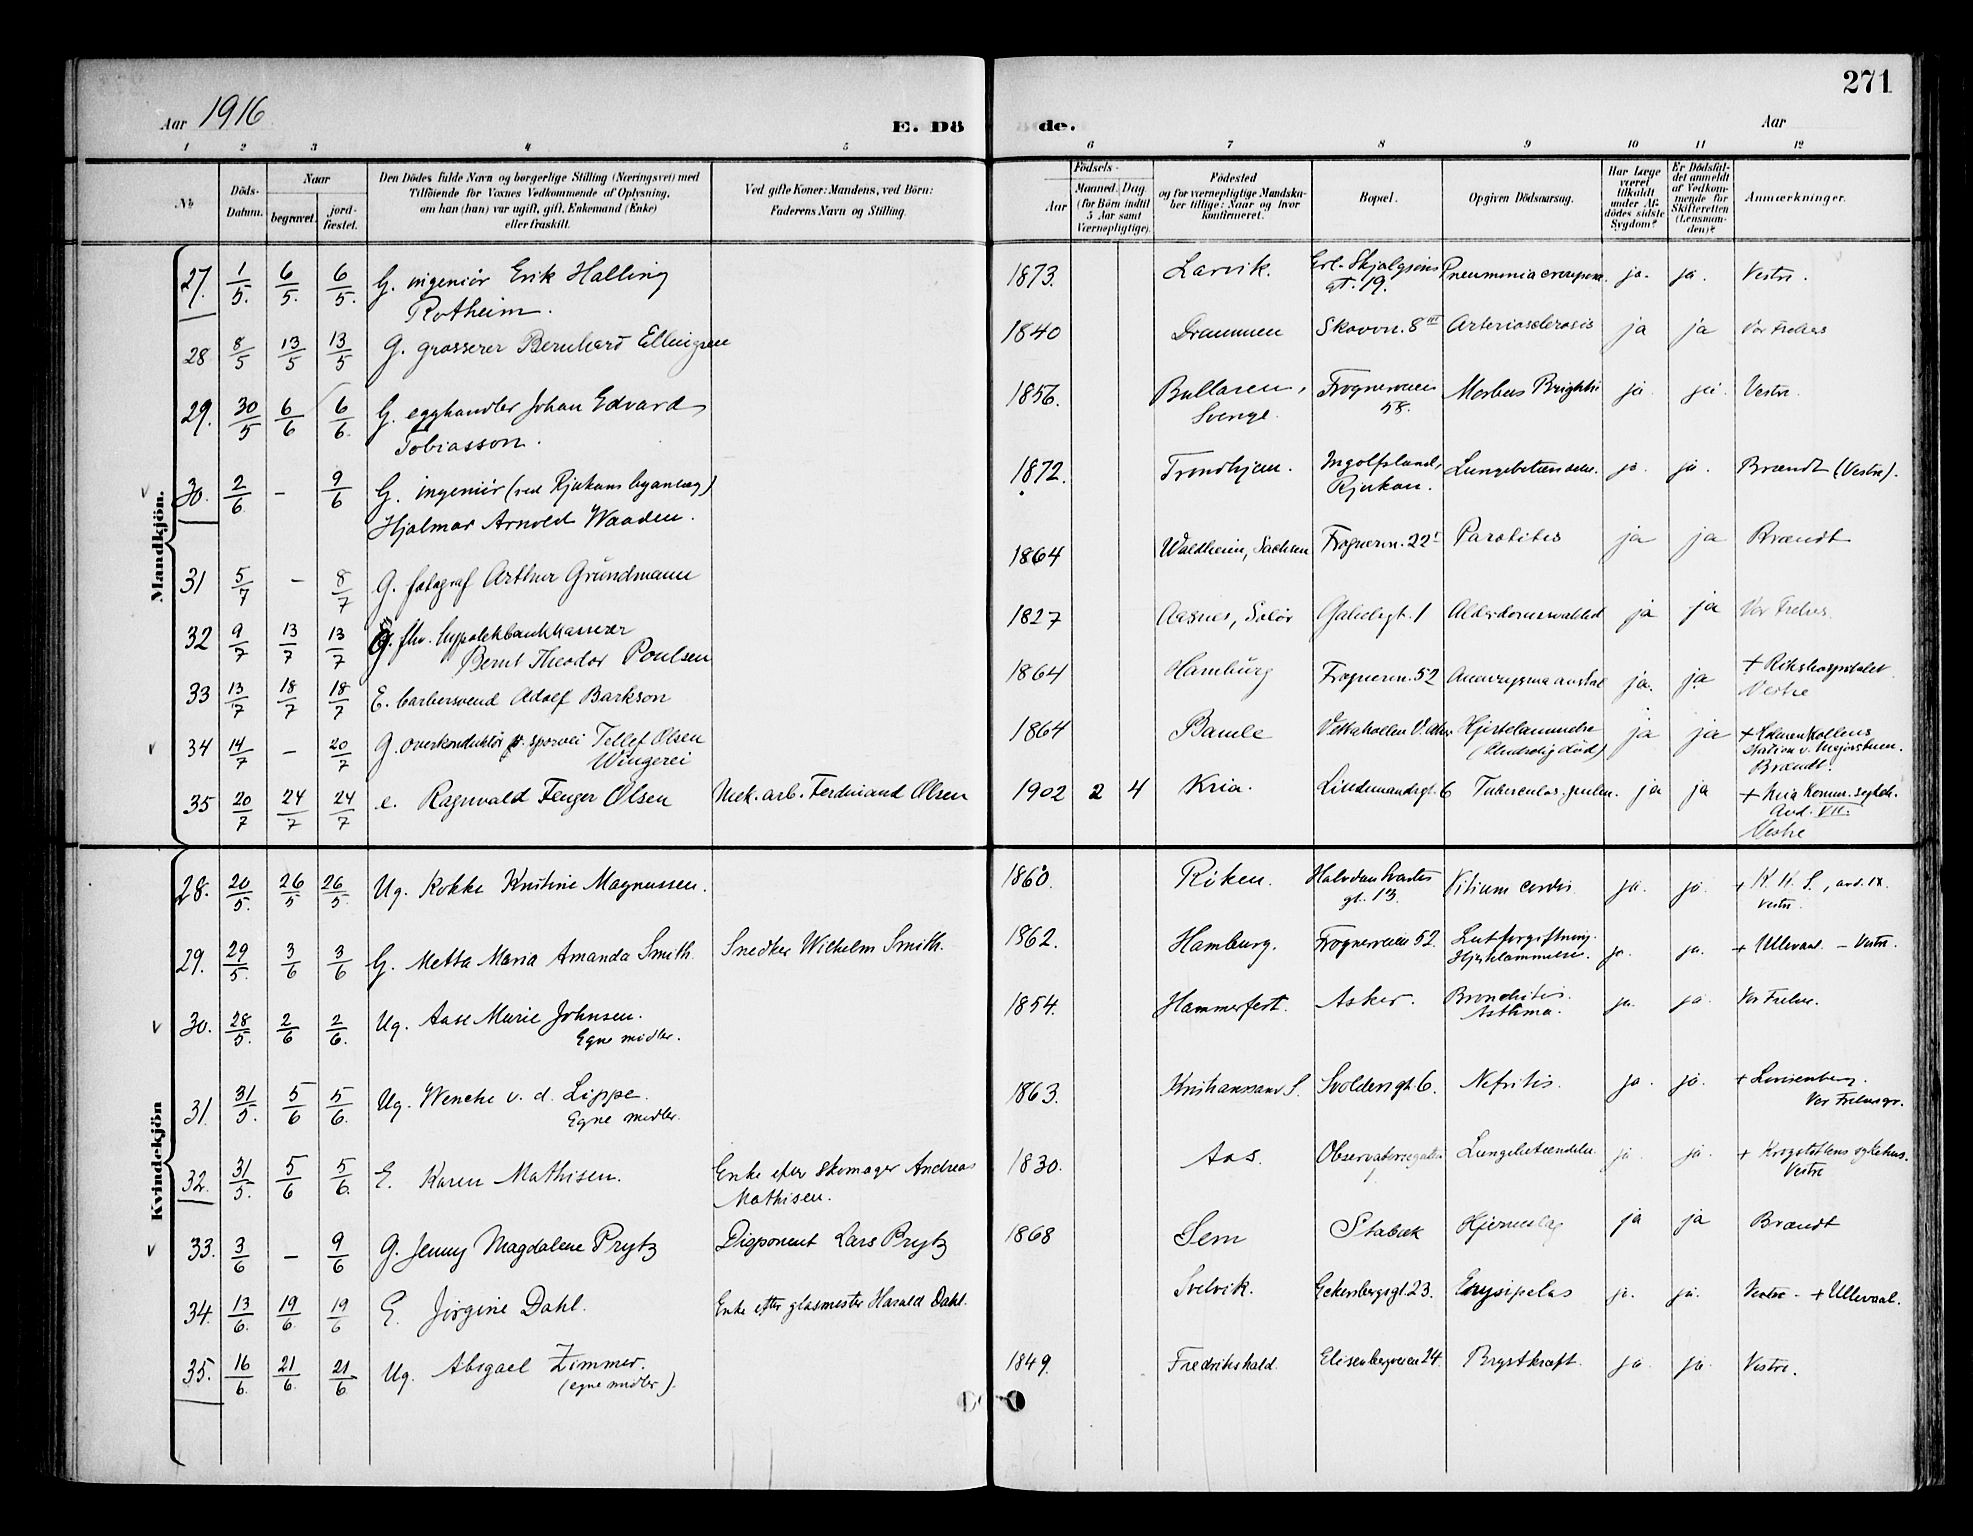 271
Aar 1916
E. Dö de.
Aar
1 2 3 4 5 6 7 8 9 10 11 12
No
Döds-Datum.
Naar
begravet.
jord-fæstet.
Den Dödes fulde Navn og borgerlige Stilling (Næringsvei) med
Tilföiende for Voxnes Vedkommende af Oplysning,
om han (hun) var ugift, gift, Enkemand (Enke)
eller fraskilt.
Ved gifte Koner: Mandens, ved Börn:
Faderens Navn og Stilling.
Födsels-
Aar
Maaned. Dag
(for Börn indtil
5 Aar samt
Værnepligtige).
Födested
og for værnepligtige Mandska-
ber tillige: Naar og hvor
konfirmeret.
Bopæl.
Opgiven Dödsaarsag.
Har Læge
været
tilkaldt
under Af-
dödes sidste
Sygdom?
Er Dödsfal-
det anmeldt
af Vedkom-
mende for
Skifteretten
(Lensman-
den)?
Anmærkninger.
Mandkjön.
27. 1/5. 6/5. 6/5. G. ingeniör Erik Halling 1873. Larvik. Erl. Skjalgsöns Pneumonia crouposa. ja. ja. Vestre.
Rotheim. gt. 19.
28 8/5 13/5 13/5 G. grosserer Bernhard Ellingsen 1840 Drammen Skovvn. 8 III Arteriosclerosis ja ja Vor Frelsers
29. 30/5 6/6 6/6. G. egghandler Johan Edvard 1856. Bullaren, Frognerveien Morbus Brightii ja. ja. Vestre.
Tobiasson. Sverige. 58.
30. 2/6 - 9/6 G. ingeniör (ved Rjukans byanlæg) 1872. Trondhjem. Ingolfsland, Lungebetændelse. ja. ja. Brændt (Vestre).
Hjalmar Arnold Waaden. Rjukan.
31 5/7 - 8/7 G. fotograf Arthur Grundmann 1864 Waldheim, Sachsen Frognervn. 22 I Parotites ja ja Brændt
32 9/7 13/7 13/7 G. fhv. hypotekbankkasserer 1827 Aasnes, Solör Gabelsgt. 1 Alderdomssvakhed ja ja Vor Frelsers
Bernt Theodor Poulsen
33 13/7 18/7 18/7 E. barbersvend Adolf Barkson 1864 Hamburg Frognervn. 52 Aneurysma aortae ja. ja + Rikshospitalet
Vestre
34 14/7 - 20/7 G. overkonduktör v. sporvei Tellef Olsen 1864 Bamle Vettakollen V. Aker Hjertelammelse ja ja + Holmenkollens
Wingerei (Uudselig död) station v. Majorstuen.
Brændt.
35 20/7 24/7 24/7 e. Ragnvald Fenger Olsen Mek. arb. Ferdinand Olsen 1902 2 4 Kria. Lindemandsgt. 6 Tuberculos. pulm. ja ja + Kria Komm. sykeh.
Avd. VII.
Vestre
Kvindekjön
28. 20/5. 26/5 26/5. Ug. Kokke Kristine Magnussen. 1860. Röken. Halvdan Svartes Vitium cordis. ja. ja. + K. K. S., avd. IX.
gt. 13. Vestre.
29. 29/5. 3/6 3/6 G. Metta Maria Amanda Smith. Snedker Wilhelm Smith. 1862. Hamburg. Frognerveien 52. Lutforgiftning. ja. ja. + Ullevaal. - Vestre.
Hjertelammelse.
30. 28/5. 2/6 2/6. Ug. Aase Marie Johnsen. 1854. Hammerfest. Asker. Bronchitis. ja. ja. Vor Frelser.
Egne midler. Asthma.
31. 31/5. 5/6 5/6. Ug. Wenche v. d. Lippe. 1863. Kristianssand S. Svoldersgt. 6. Nefritis. ja. ja. + Lovisenberg.
Egne midler. Vor Frelsersgr.
32. 31/5. 5/6 5/6. E. Karen Mathisen. Enke efter skomager Andreas 1830. Aas. Observatoriegaten Lungebetændelse. ja ja. + Krogstöttens sykehus.
Mathisen. 1 Vestre
33. 3/6 - 9/6 G. Jenny Magdalene Prytz Disponent Lars Prytz 1868 Sem Stabæk Hjerneslag ja ja Brændt
34. 13/6. 19/6. 19/6 E. Jörgine Dahl. Enke efter glasmester Harald Dahl. Svelvik. Eckersbergsgt. 23. Erysipelas ja. ja. Vestre - + Ullevaal.
35. 16/6. 21/6. 21/6 Ug. Abigael Zimmer. 1849. Fredrikshald. Elisenbergveien 24. Brystkræft. ja. ja. Vestre.
(egne midler).